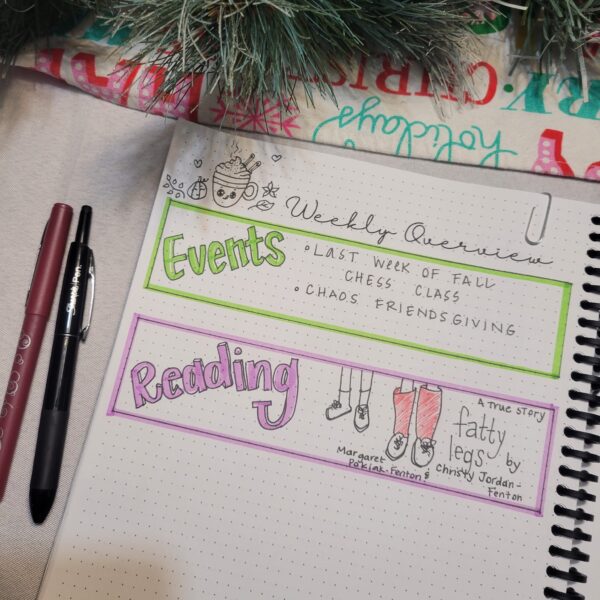 holidays
Weekly Overview
Events
• LAST WEEK OF FALL
CHESS CLASS
• CHAOS FRIENDSGIVING
Reading
A True Story
fatty
legs by
Margaret
Pokiak-Fenton &
Christy Jordan-
Fenton